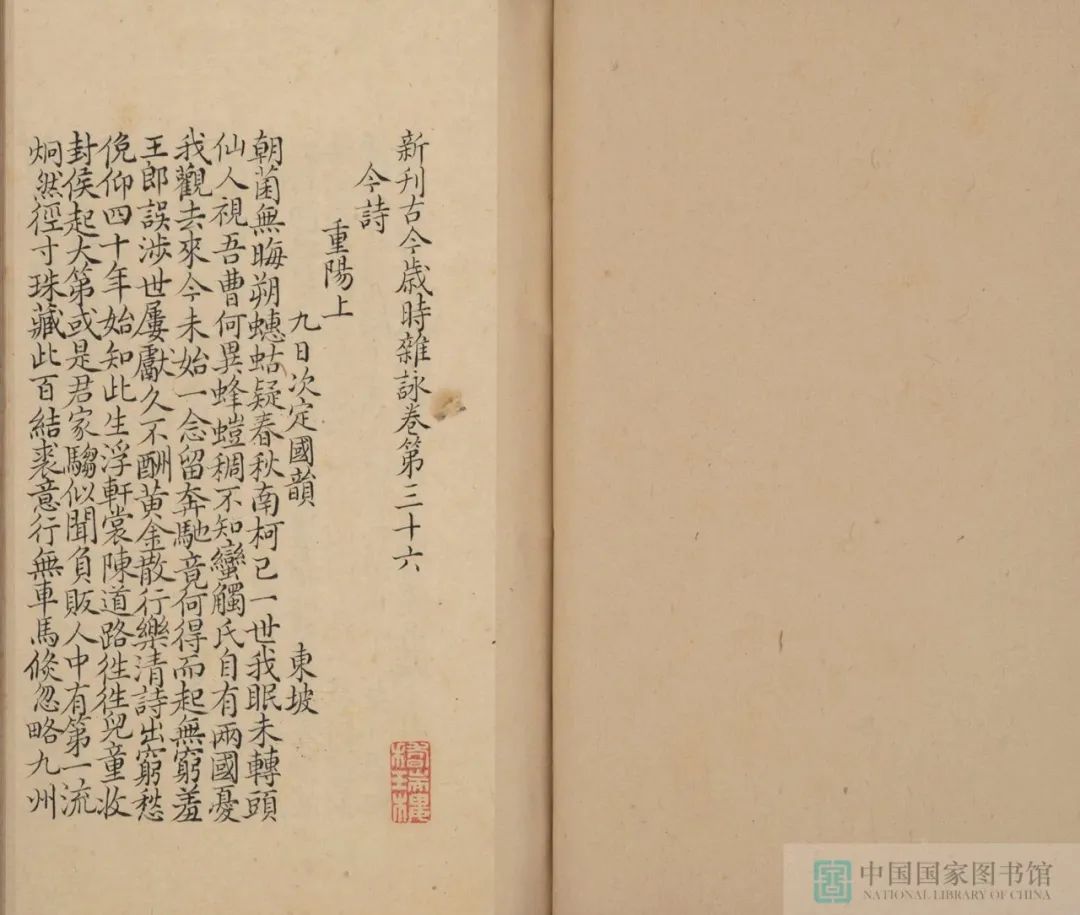 新刋古今歲時雜詠卷第三十六
今詩
重陽上
九日次定國韻 東坡
朝菌無晦朔蟪蛄疑春秋南柯已一世我眠未轉頭
仙人視吾曹何異蜂螘稠不知蠻觸氏自有兩國憂
我觀去來今未始一念留奔馳竟何得而起無窮羞
王郎誤涉世屢獻久不酬黃金散行樂清詩出窮愁
俛仰四十年始知此生浮軒裳陳道路徃徃兒童收
封侯起大第或是君家騶似聞負販人中有第一流
炯然徑寸珠藏此百結裘意行無車馬倐忽略九州
中国国家图书馆
NATIONAL LIBRARY OF CHINA